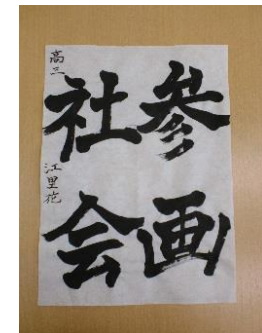 参画
社会
高三 江里花